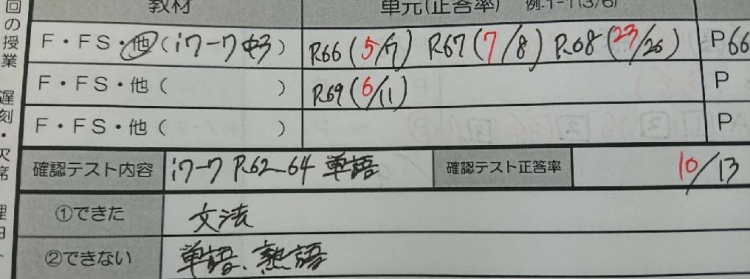 教材 単元(正答率) 例:1-1(3/6)
回の授業
F・FS・他(iワーク中3) P.66(5/7) P.67(7/8) P.68(23/26) P 66
F・FS・他( ) P.69(6/11) P
F・FS・他( ) P
遅刻・欠席
確認テスト内容 iワーク P.62~64 単語 確認テスト正答率 10/13
①できた 文法
②できない 単語、熟語